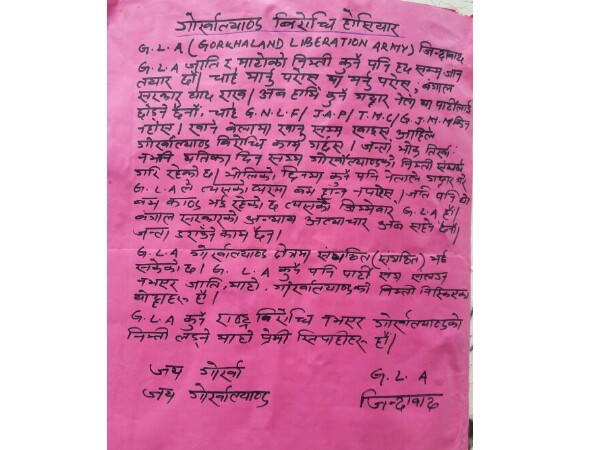 गोर्खाल्याण्ड बिरोधि होसियार
G.L.A (GORKHALAND LIBERATION ARMY) जिन्दावाद
G.L.A जाति र माटोको निम्ती कुनै पनि हद सम्म जान
तयार छौं। चाहे मार्नु परोस या मर्नु परोस, बंगाल
सरकार याद राख। अब हामि कुनै गद्दार नेता या पार्टीलाई
छोड्ने छैनौं। चाहे G.N.L.F/J.A.P/T.M.C/G.J.M.M किन
नहोस। खाने बेलामा खानु सम्म खाइस अहिले
गोर्खाल्याण्ड बिरोधि काम गर्दैस। जन्ता भोक तिर्खा
नभनि यतिका दिन सम्म गोर्खाल्याण्डको निम्ती संघर्ष
गरि रहेको छ। भोलिको दिनमा कुनै पनि नेताले गद्दार गरे
G.L.A ले त्यसको घरमा बम हान्न नपरोस, जति पनि
बम काण्ड भई रहेको छ त्यसको जिम्मेवार G.L.A हौं।
बंगाल सरकारको अन्याय अत्याचार अब सहने छैनौं।
जन्ता डराउँने काम छैन।
G.L.A गोर्खाल्याण्ड क्षेत्रमा संघठित (संग्रहित) भई
सकेको छ। G.L.A कुनै पनि पार्टी संग सलग्न
नभएर जाति, माटो, गोर्खाल्याण्डको निम्ती निस्किएका
योद्धाहरू हौं।
G.L.A कुनै राष्ट्र बिरोधि नभएर गोर्खाल्याण्डको
निम्ती लड्ने माटो प्रेमी सिपाहीहरू हौं।
जय गोर्खा
जय गोर्खाल्याण्ड
G.L.A
जिन्दावाद